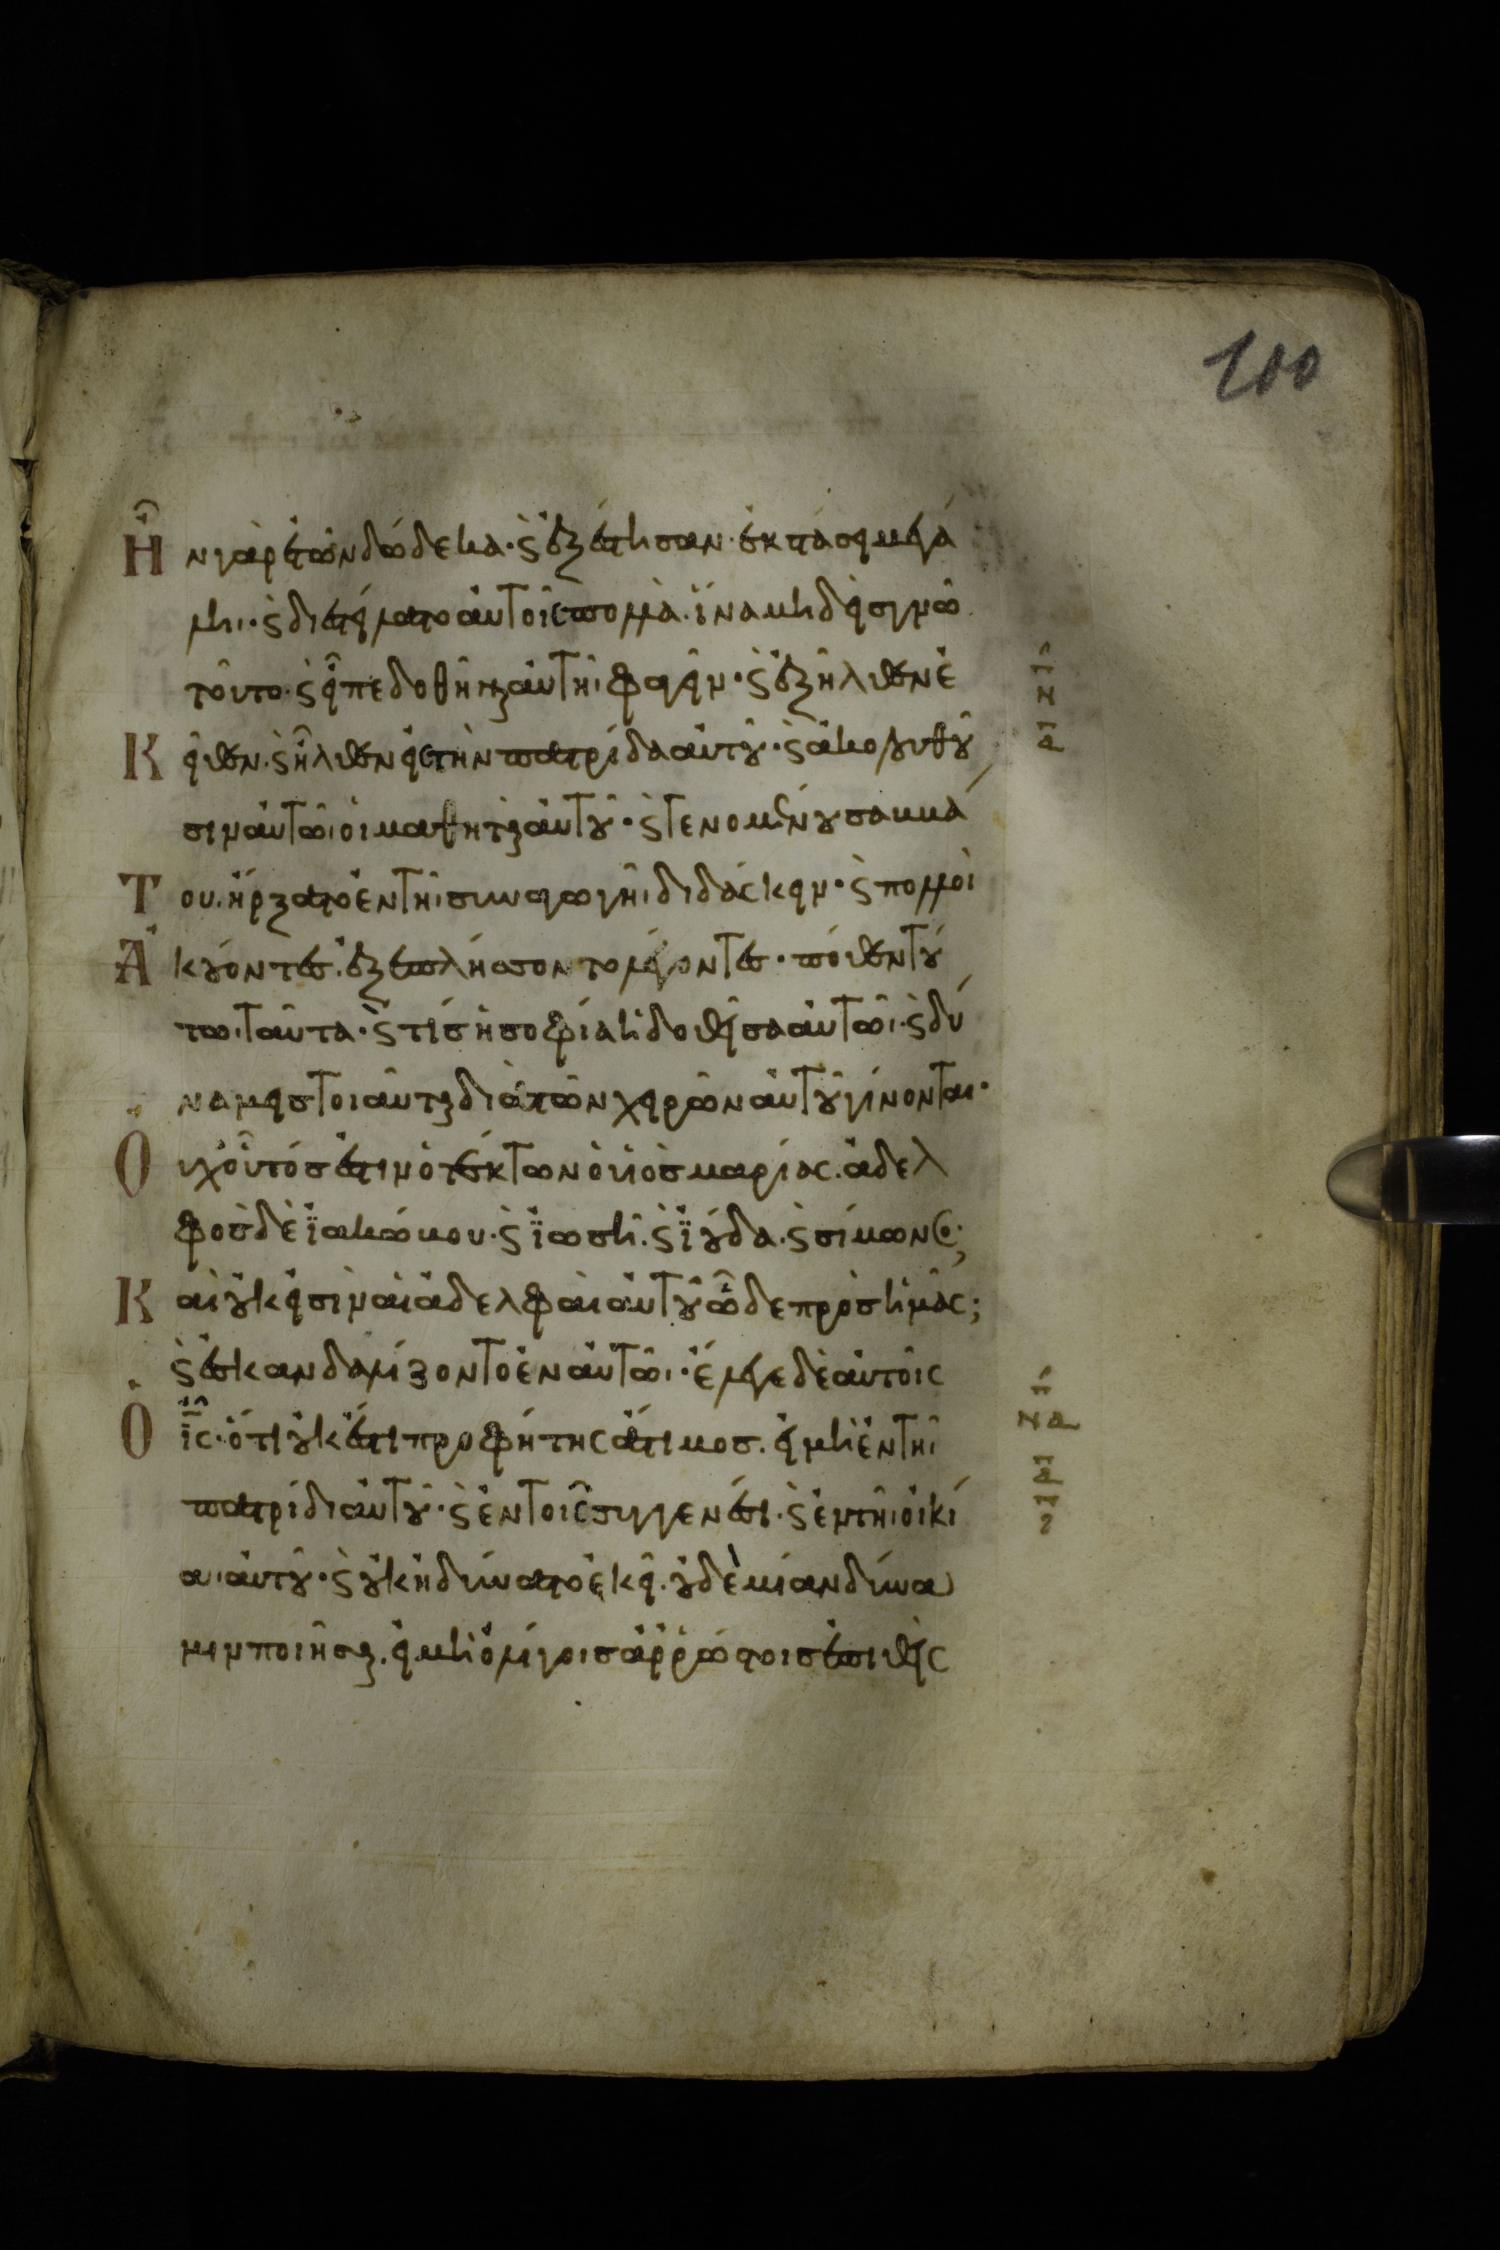 100
Ἦν γὰρ ἐτῶν δώδεκα· ϛ ἐξέστησαν ἐκστάσει μεγά
λῃ· ϛ διεστείλατο αὐτοῖς πολλὰ· ἵνα μηδεὶς γνῶ
τοῦτο· ϛ εἶπε δοθῆναι αὐτῆι φαγεῖν· ϛ ἐξῆλθεν ἐ
Κεῖθεν· ϛ ἦλθεν εἰς τὴν πατρίδα αὐτοῦ· ϛ ἀκολουθοῦ
σιν αὐτῶι οἱ μαθηταὶ αὐτοῦ· ϛ γενομένου σαββά
Του· ἤρξατο ἐν τῆι συναγωγῆι διδάσκειν· ϛ πολλοὶ
Ἀκούοντες· ἐξεπλήσσοντο λέγοντες· πόθεν τού
τω ταῦτα· ϛ τίς ἡ σοφία ἡ δοθεῖσα αὐτῶι· ϛ δυ
νάμεις τοιαῦται διὰ τῶν χειρῶν αὐτοῦ γίνονται·
Οὐχ οὗτός ἐστιν ὁ τέκτων ὁ υἱὸς μαρίας· ἀδελ
φὸς δὲ ἰακώβου· ϛ ἰωσῆ· ϛ ἰούδα· ϛ σίμωνος;
Καὶ οὐκ εἰσὶν αἱ ἀδελφαὶ αὐτοῦ ὧδε πρὸς ἡμᾶς;
ϛ ἐσκανδαλίζοντο ἐν αὐτῶι· ἔλεγε δὲ αὐτοῖς
Ὁ ἰς· ὅτι οὐκ ἔστι προφήτης ἄτιμος· εἰ μὴ ἐν τῆι
πατρίδι αὐτοῦ· ϛ ἐν τοῖς συγγενέσι· ϛ ἐν τῆι οἰκί
α αὐτοῦ· ϛ οὐκ ἠδύνατο ἐκεῖ· οὐδεμίαν δύνα
μιν ποιῆσαι· εἰ μὴ ὀλίγοις ἀρρώστοις ἐπιθεὶς